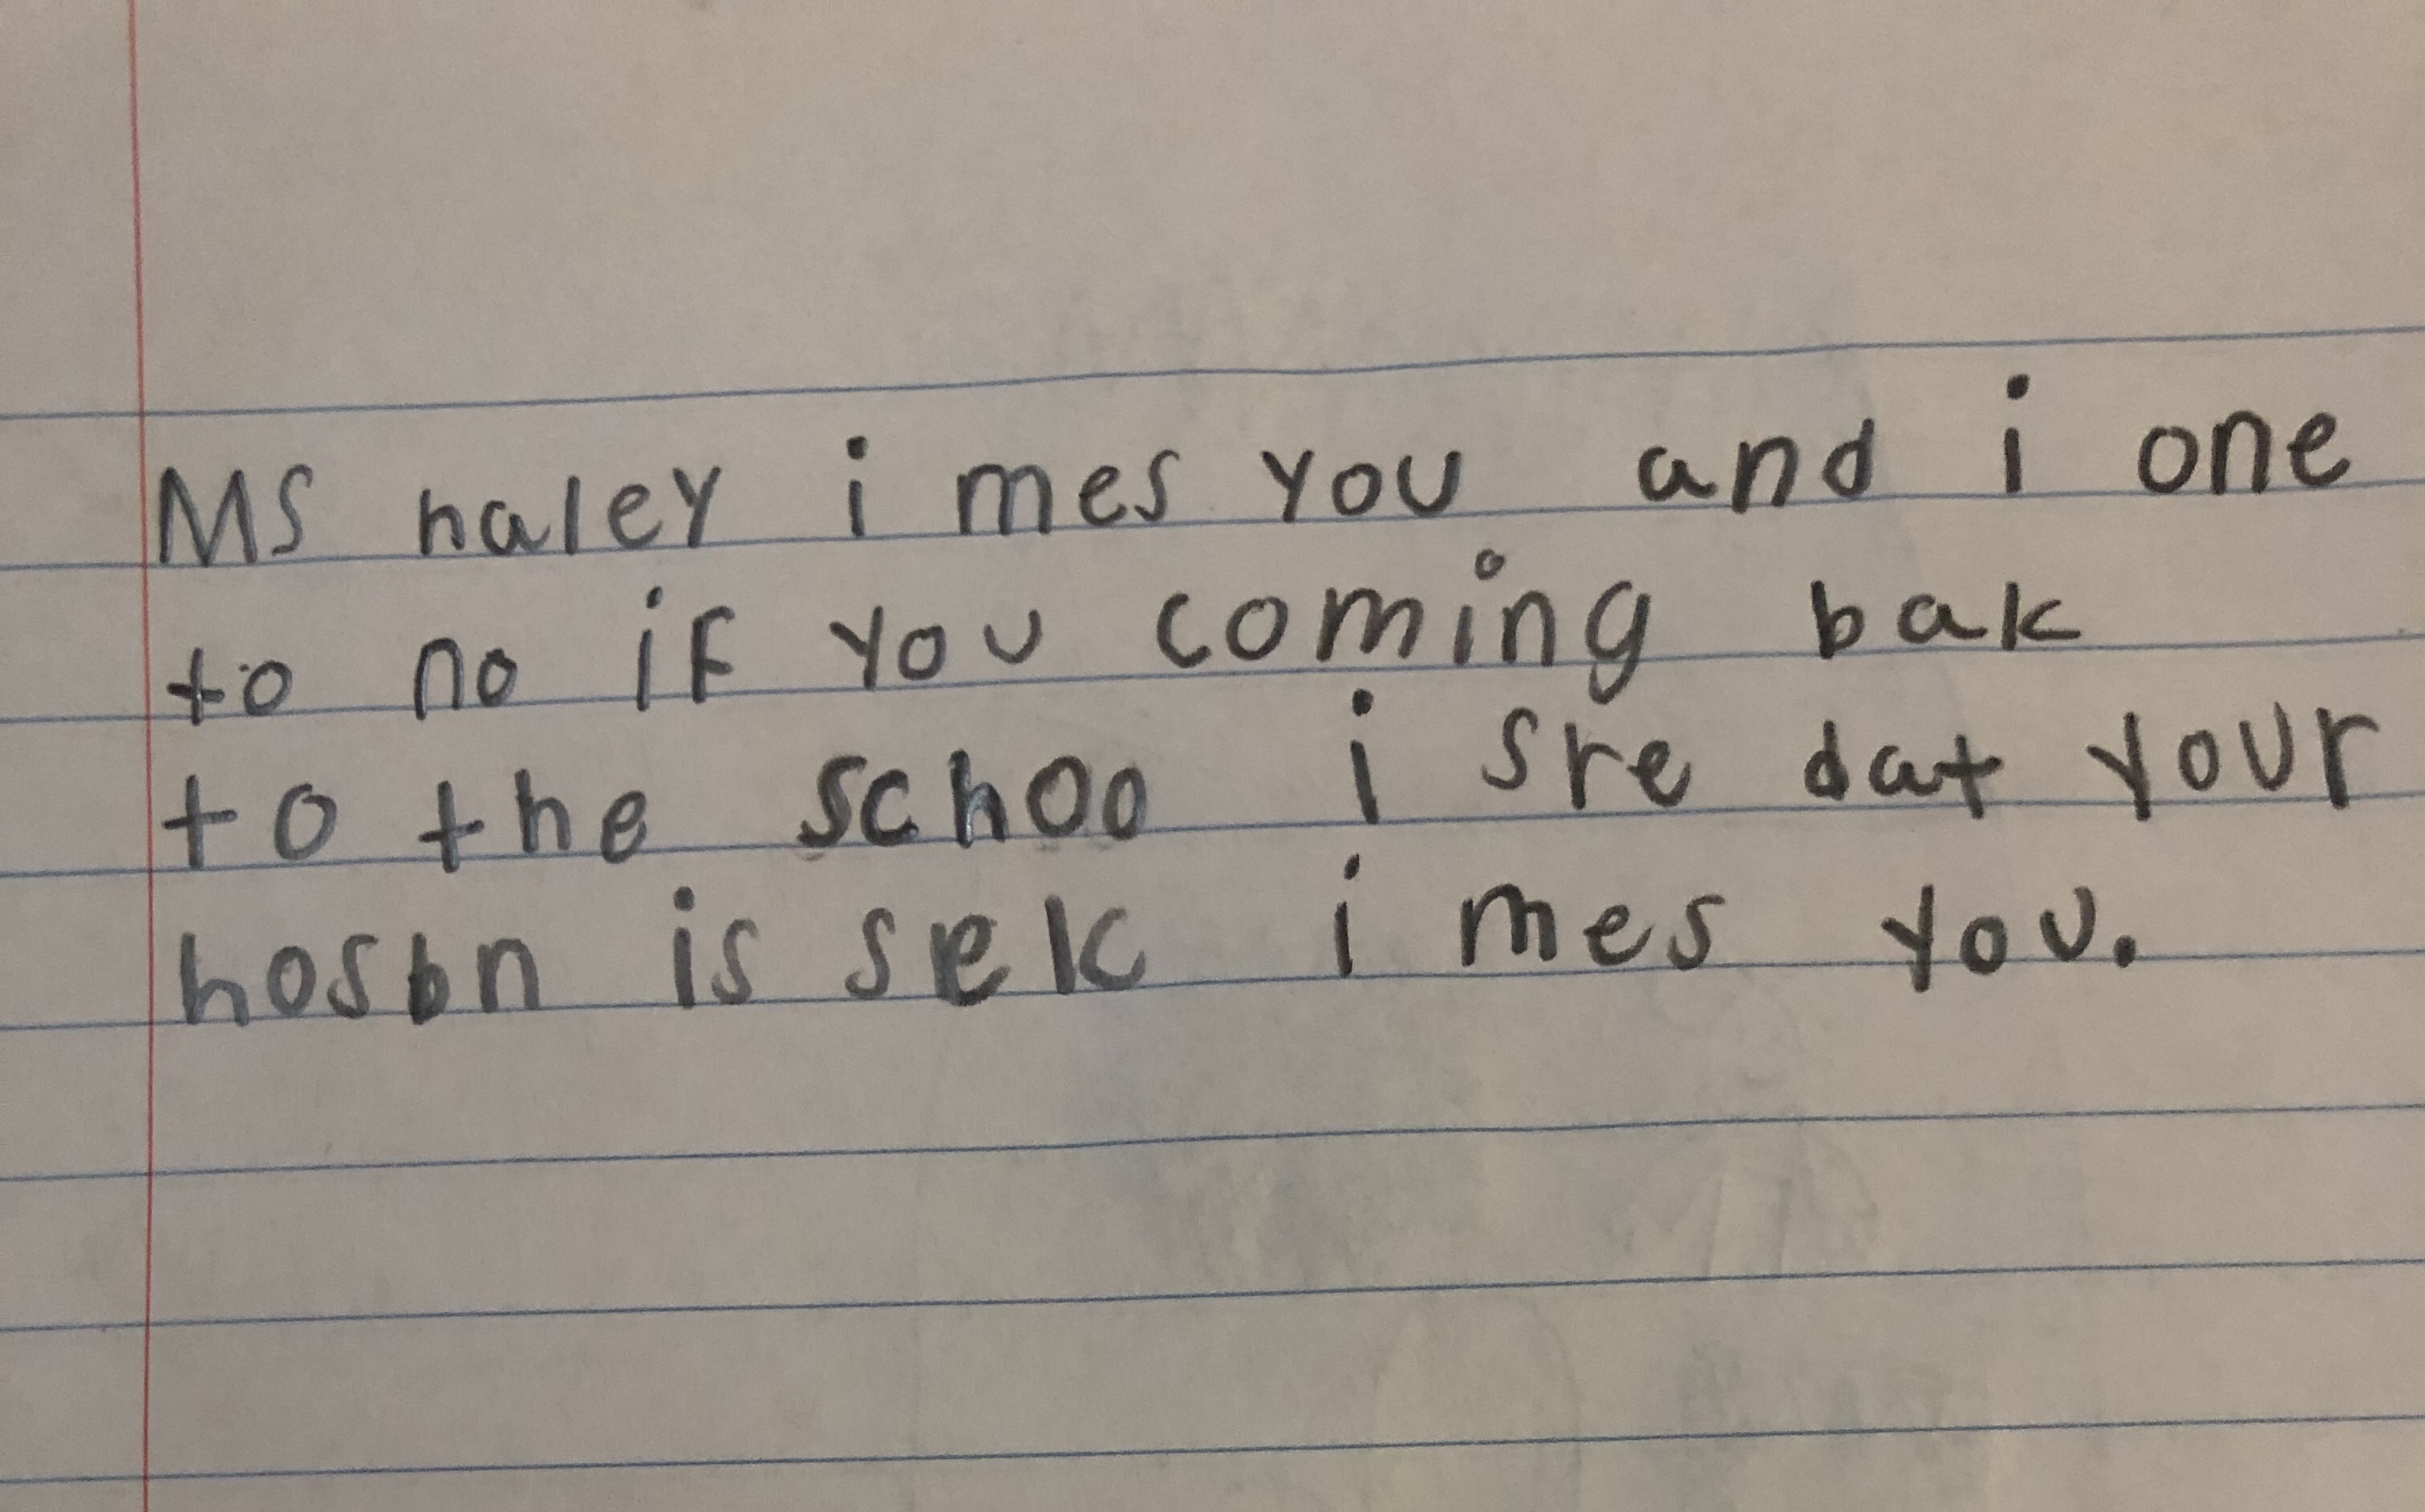 MS haley i mes you and i one
to no if you coming bak
to the schoo i sre dat your
hosbn is sek i mes you.